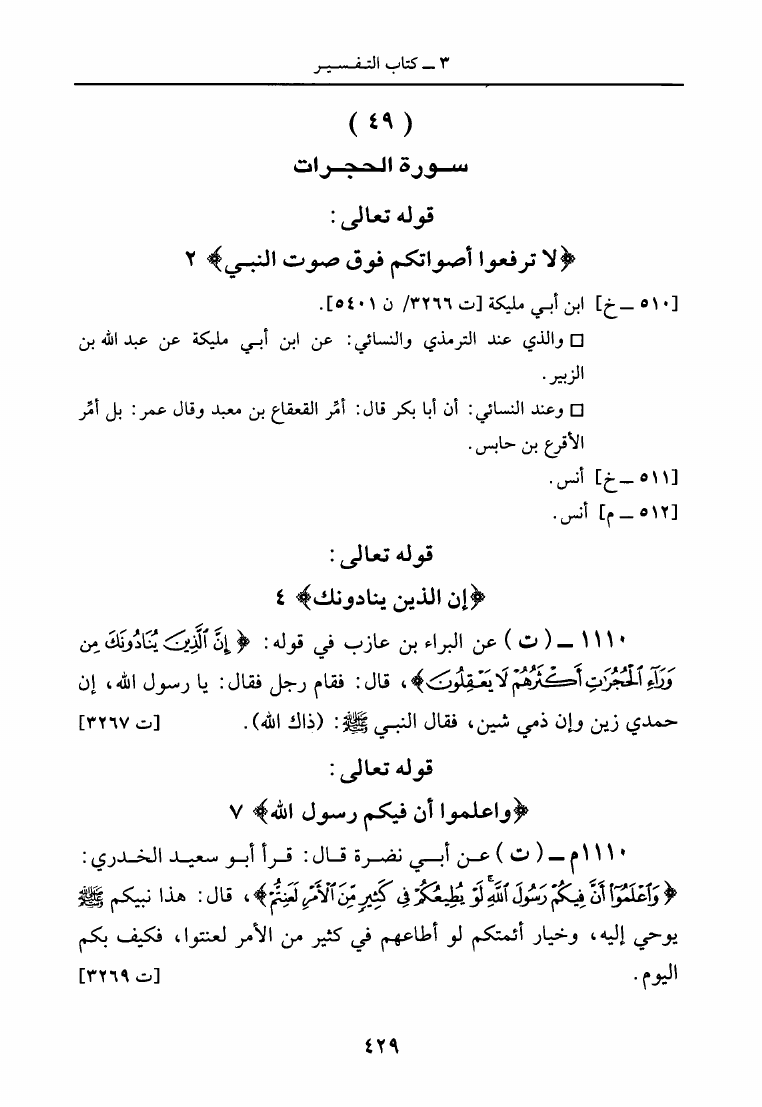 ٣ ـ كتاب التـفـسـيـر
( ٤٩ )
سـورة الحجـرات
قوله تعالى:
﴿لا ترفعوا أصواتكم فوق صوت النبي﴾ ٢
[٥١٠ ـ خ] ابن أبي مليكة [ت ٣٢٦٦/ ن ٥٤٠١].
□ والذي عند الترمذي والنسائي: عن ابن أبي مليكة عن عبد الله بن
الزبير.
□ وعند النسائي: أن أبا بكر قال: أمِّر القعقاع بن معبد وقال عمر: بل أمِّر
الأقرع بن حابس.
[٥١١ ـ خ] أنس.
[٥١٢ ـ م] أنس.
قوله تعالى:
﴿إن الذين ينادونك﴾ ٤
١١١٠ ـ (ت) عن البراء بن عازب في قوله: ﴿إِنَّ ٱلَّذِينَ يُنَادُونَكَ مِن
وَرَآءِ ٱلْحُجُرَٰتِ أَكْثَرُهُمْ لَا يَعْقِلُونَ﴾، قال: فقام رجل فقال: يا رسول الله، إن
حمدي زين وإن ذمي شين، فقال النبي ﷺ: (ذاك الله). [ت ٣٢٦٧]
قوله تعالى:
﴿واعلموا أن فيكم رسول الله﴾ ٧
١١١٠م ـ (ت) عـن أبـي نضـرة قـال: قـرأ أبـو سعيـد الخـدري:
﴿وَٱعْلَمُوٓا۟ أَنَّ فِيكُمْ رَسُولَ ٱللَّهِ ۚ لَوْ يُطِيعُكُمْ فِى كَثِيرٍ مِّنَ ٱلْأَمْرِ لَعَنِتُّمْ﴾، قال: هذا نبيكم ﷺ
يوحي إليه، وخيار أئمتكم لو أطاعهم في كثير من الأمر لعنتوا، فكيف بكم
اليوم. [ت ٣٢٦٩]
٤٢٩